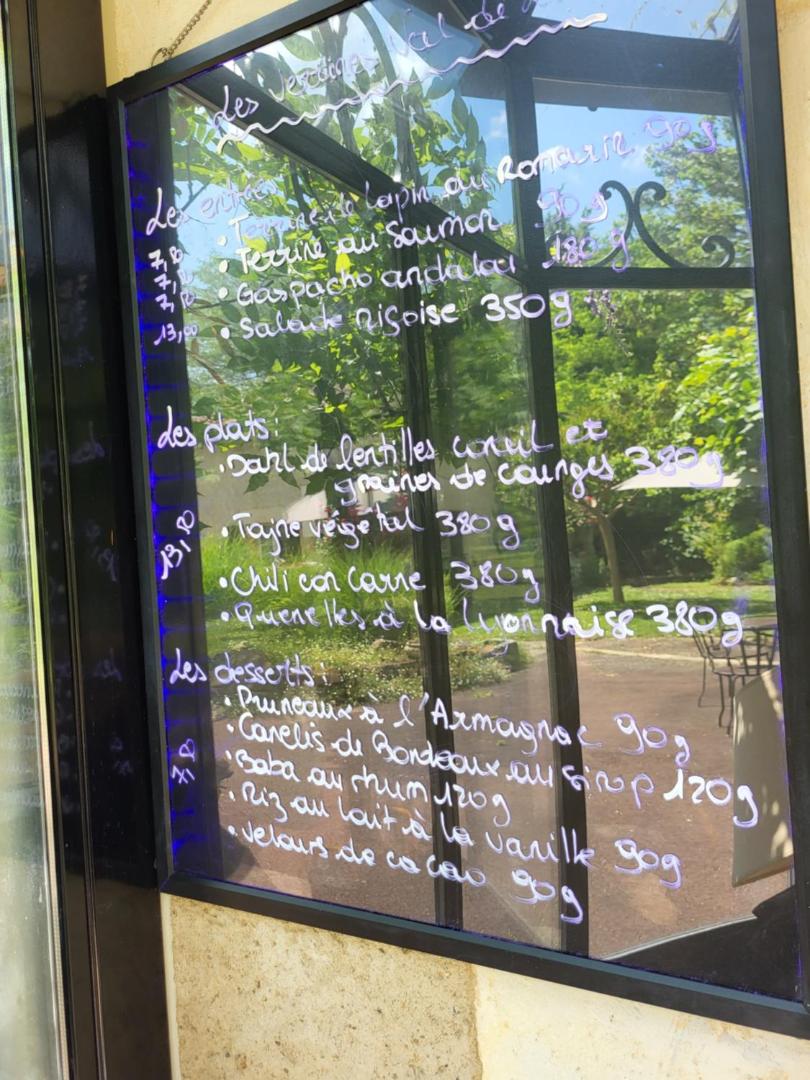 Les Verrines Val de
Les entrées
7,80 • Terrine de lapin au Romarin 90g
7,80 • Terrine au saumon 90g
7,80 • Gaspacho andalou 180g
13,00 • Salade niçoise 350g
Les plats:
• Dahl de lentilles corail et
graines de courges 380g
13,80 • Tajne végétal 380g
• Chili con carne 380g
• Quenelles à la lyonnaise 380g
Les desserts:
• Pruneaux à l'Armagnac 90g
• Canelés de Bordeaux au sirop 120g
7,80 • Baba au rhum 120g
• Riz au lait à la vanille 90g
• Velours de cacao 90g